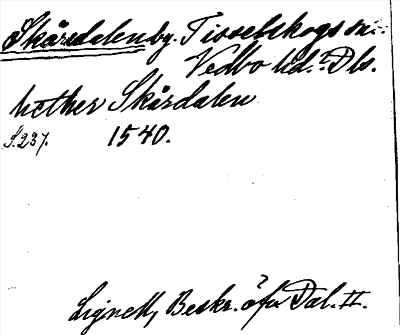 Skårsdalen by. Tisselskogs sn.
Vedbo hd. Dls.
hether Skårdalen
S. 237. 1540.
Lignell, Beskr. öfv. Dal. II.